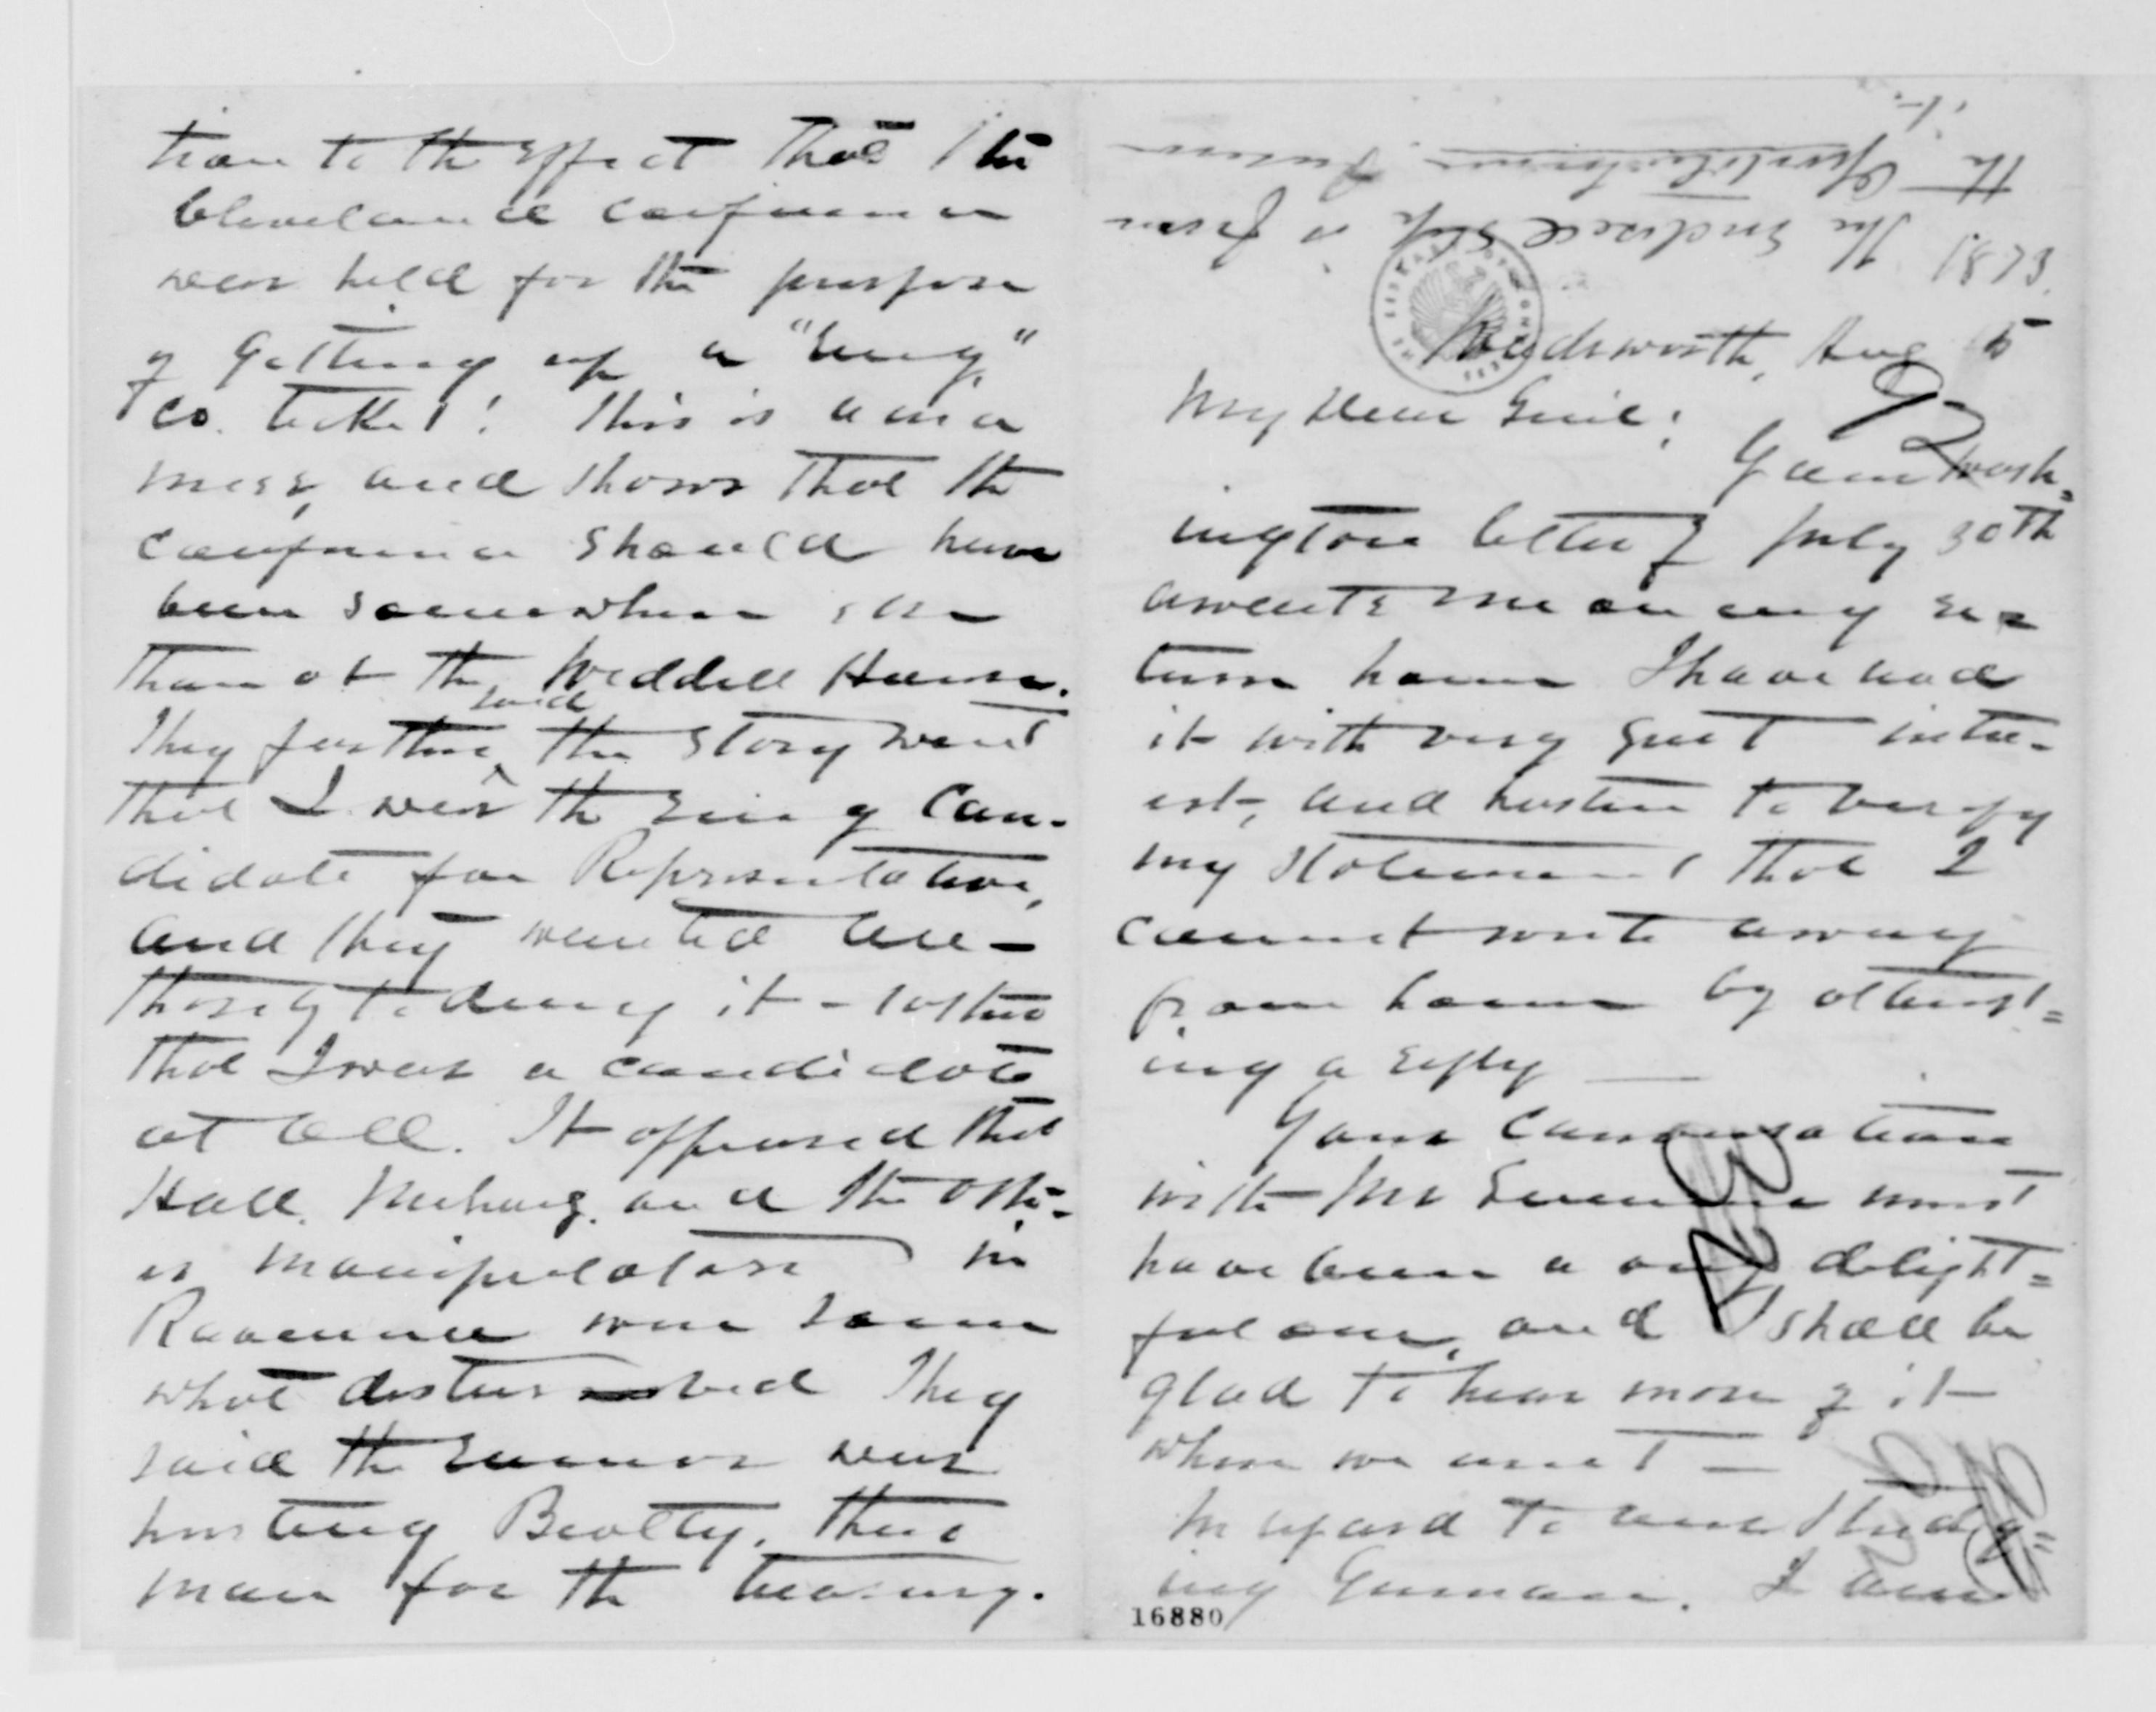 tion to the effect that the
Cleveland conference
was held for the purpose
of getting up a "ring"
Co. ticket! This is a nice
mess, and shows that the
conference should have
been somewhere else
than at the Weddell House.
They further said the story went
that I was the ring can-
didate for Representative,
and they wanted au-
thority to deny it - rather
that I was a candidate
at all. It appeared that
Hall, and the oth-
er manipulators in
Ravenna were some
what disturbed They
said the rumor was
hurting Beatty, their
man for the treasury.
The enclosed slip is from
the
it.
1873.
Wadsworth, Aug 5
My Dear Girl:
Your Wash-
ington letter of July 30th
awaits me on my re-
turn home I have read
it with very great inter-
est, and hasten to verify
my statement that I
cannot write away
from home by attempt-
ing a reply —
Your conversation
with Mr must
have been a very delight-
ful one, and I shall be
glad to hear more of it
when we meet —
In regard to our study-
ing German. I am
16880